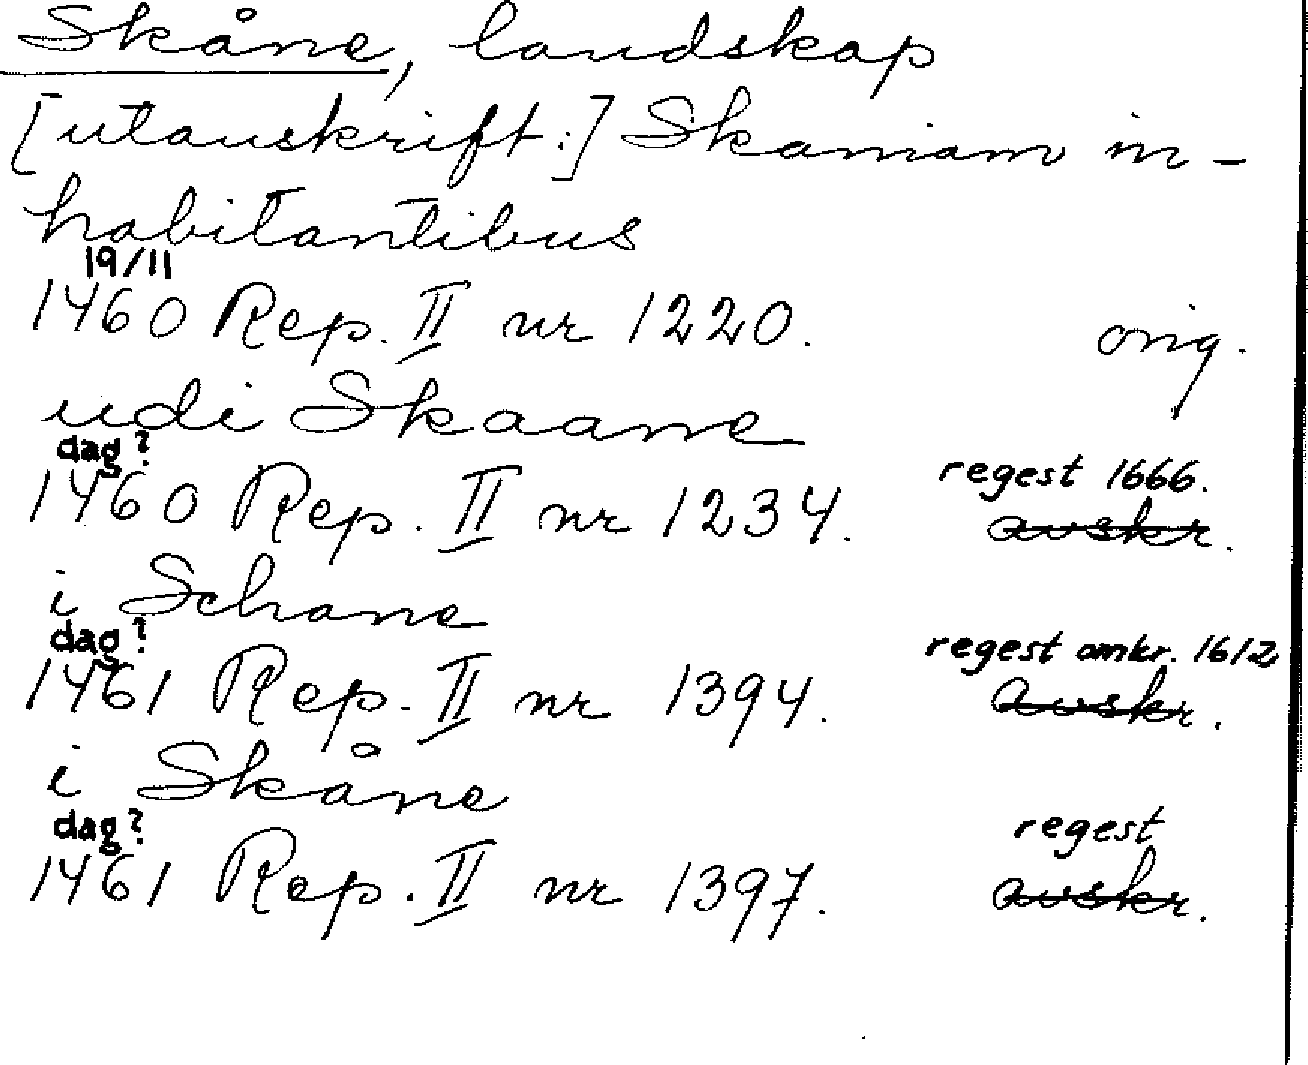 Skåne, landskap
[utanskrift:] Skaniam in-
habitantibus
19/11
1460 Rep. II nr 1220. orig.
udi Skaane
dag? regest 1666.
1460 Rep. II nr 1234. avskr.
i Schane
dag? regest omkr. 1612
1461 Rep. II nr 1394. avskr.
i Skåne
dag? regest
1461 Rep. II nr 1397. avskr.